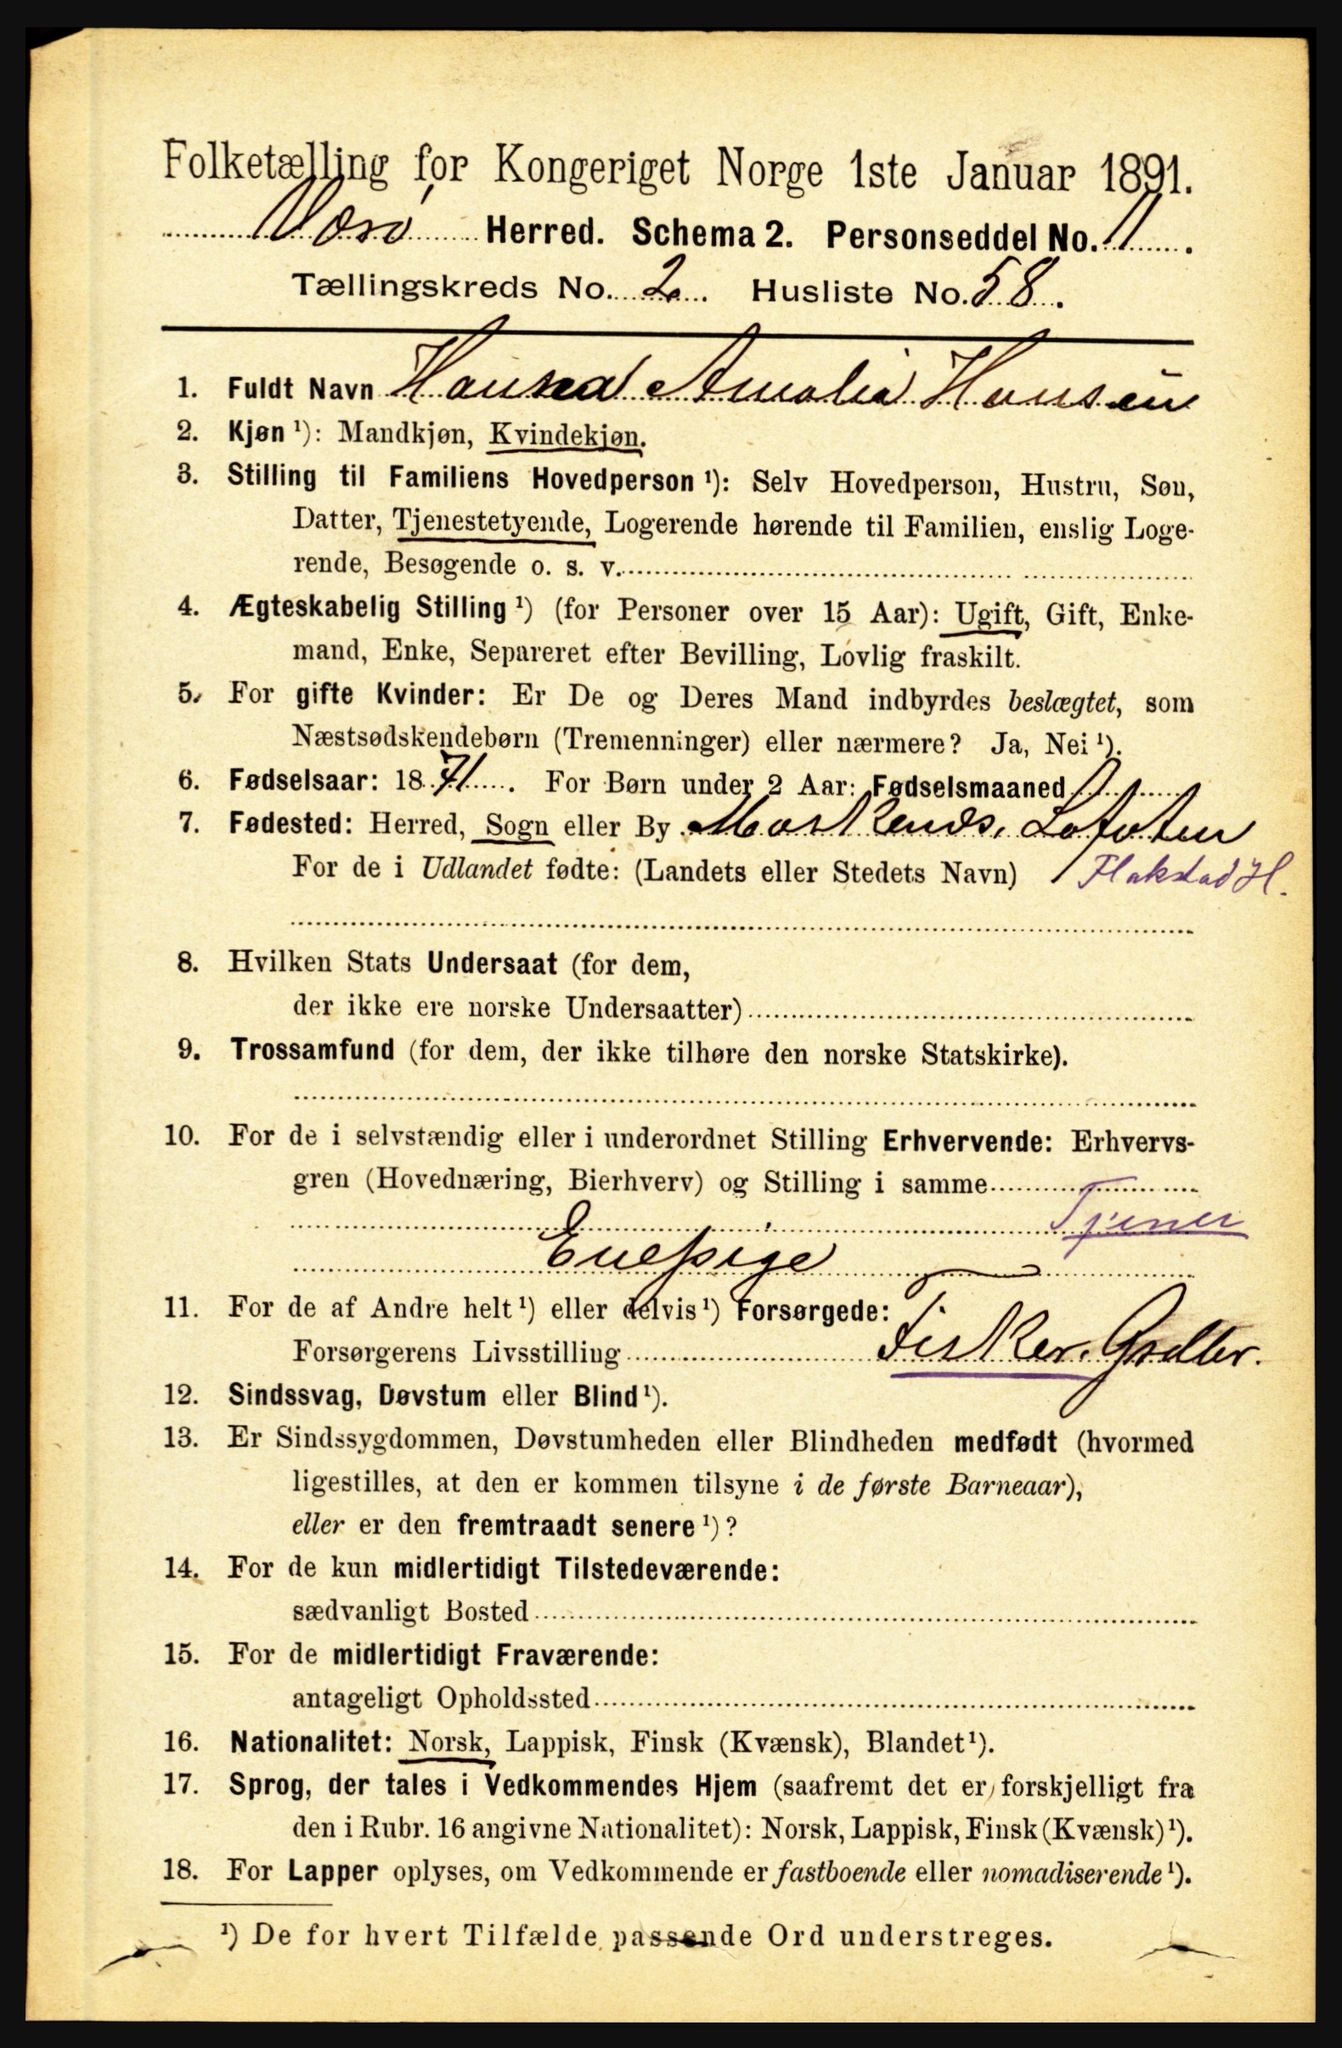 Folketælling for Kongeriget Norge 1ste Januar 1891.
Værø Herred. Schema 2. Personseddel No. 11.
Tællingskreds No. 2. Husliste No. 58.
1. Fuldt Navn Hansea Amalia Hansen
2. Kjøn ¹): Mandkjøn, Kvindekjøn.
3. Stilling til Familiens Hovedperson ¹): Selv Hovedperson, Hustru, Søn,
Datter, Tjenestetyende, Logerende hørende til Familien, enslig Loge-
rende, Besøgende o. s. v.
4. Ægteskabelig Stilling ¹) (for Personer over 15 Aar): Ugift, Gift, Enke-
mand, Enke, Separeret efter Bevilling, Lovlig fraskilt.
5. For gifte Kvinder: Er De og Deres Mand indbyrdes beslægtet, som
Næstsødskendebørn (Tremenninger) eller nærmere? Ja, Nei ¹).
6. Fødselsaar: 1871. For Børn under 2 Aar: Fødselsmaaned
7. Fødested: Herred, Sogn eller By Moskenes, Lofoten
For de i Udlandet fødte: (Landets eller Stedets Navn) Flakstad H.
8. Hvilken Stats Undersaat (for dem,
der ikke ere norske Undersaatter)
9. Trossamfund (for dem, der ikke tilhøre den norske Statskirke).
10. For de i selvstændig eller i underordnet Stilling Erhvervende: Erhvervs-
gren (Hovednæring, Bierhverv) og Stilling i samme
Tjener
Enepige
11. For de af Andre helt ¹) eller delvis ¹) Forsørgede:
Forsørgerens Livsstilling Fisker.
12. Sindssvag, Døvstum eller Blind ¹).
13. Er Sindssygdommen, Døvstumheden eller Blindheden medfødt (hvormed
ligestilles, at den er kommen tilsyne i de første Barneaar),
eller er den fremtraadt senere ¹)?
14. For de kun midlertidigt Tilstedeværende:
sædvanligt Bosted
15. For de midlertidigt Fraværende:
antageligt Opholdssted
16. Nationalitet: Norsk, Lappisk, Finsk (Kvænsk), Blandet ¹).
17. Sprog, der tales i Vedkommendes Hjem (saafremt det er forskjelligt fra
den i Rubr. 16 angivne Nationalitet): Norsk, Lappisk, Finsk (Kvænsk) ¹).
18. For Lapper oplyses, om Vedkommende er fastboende eller nomadiserende ¹).
¹) De for hvert Tilfælde passende Ord understreges.